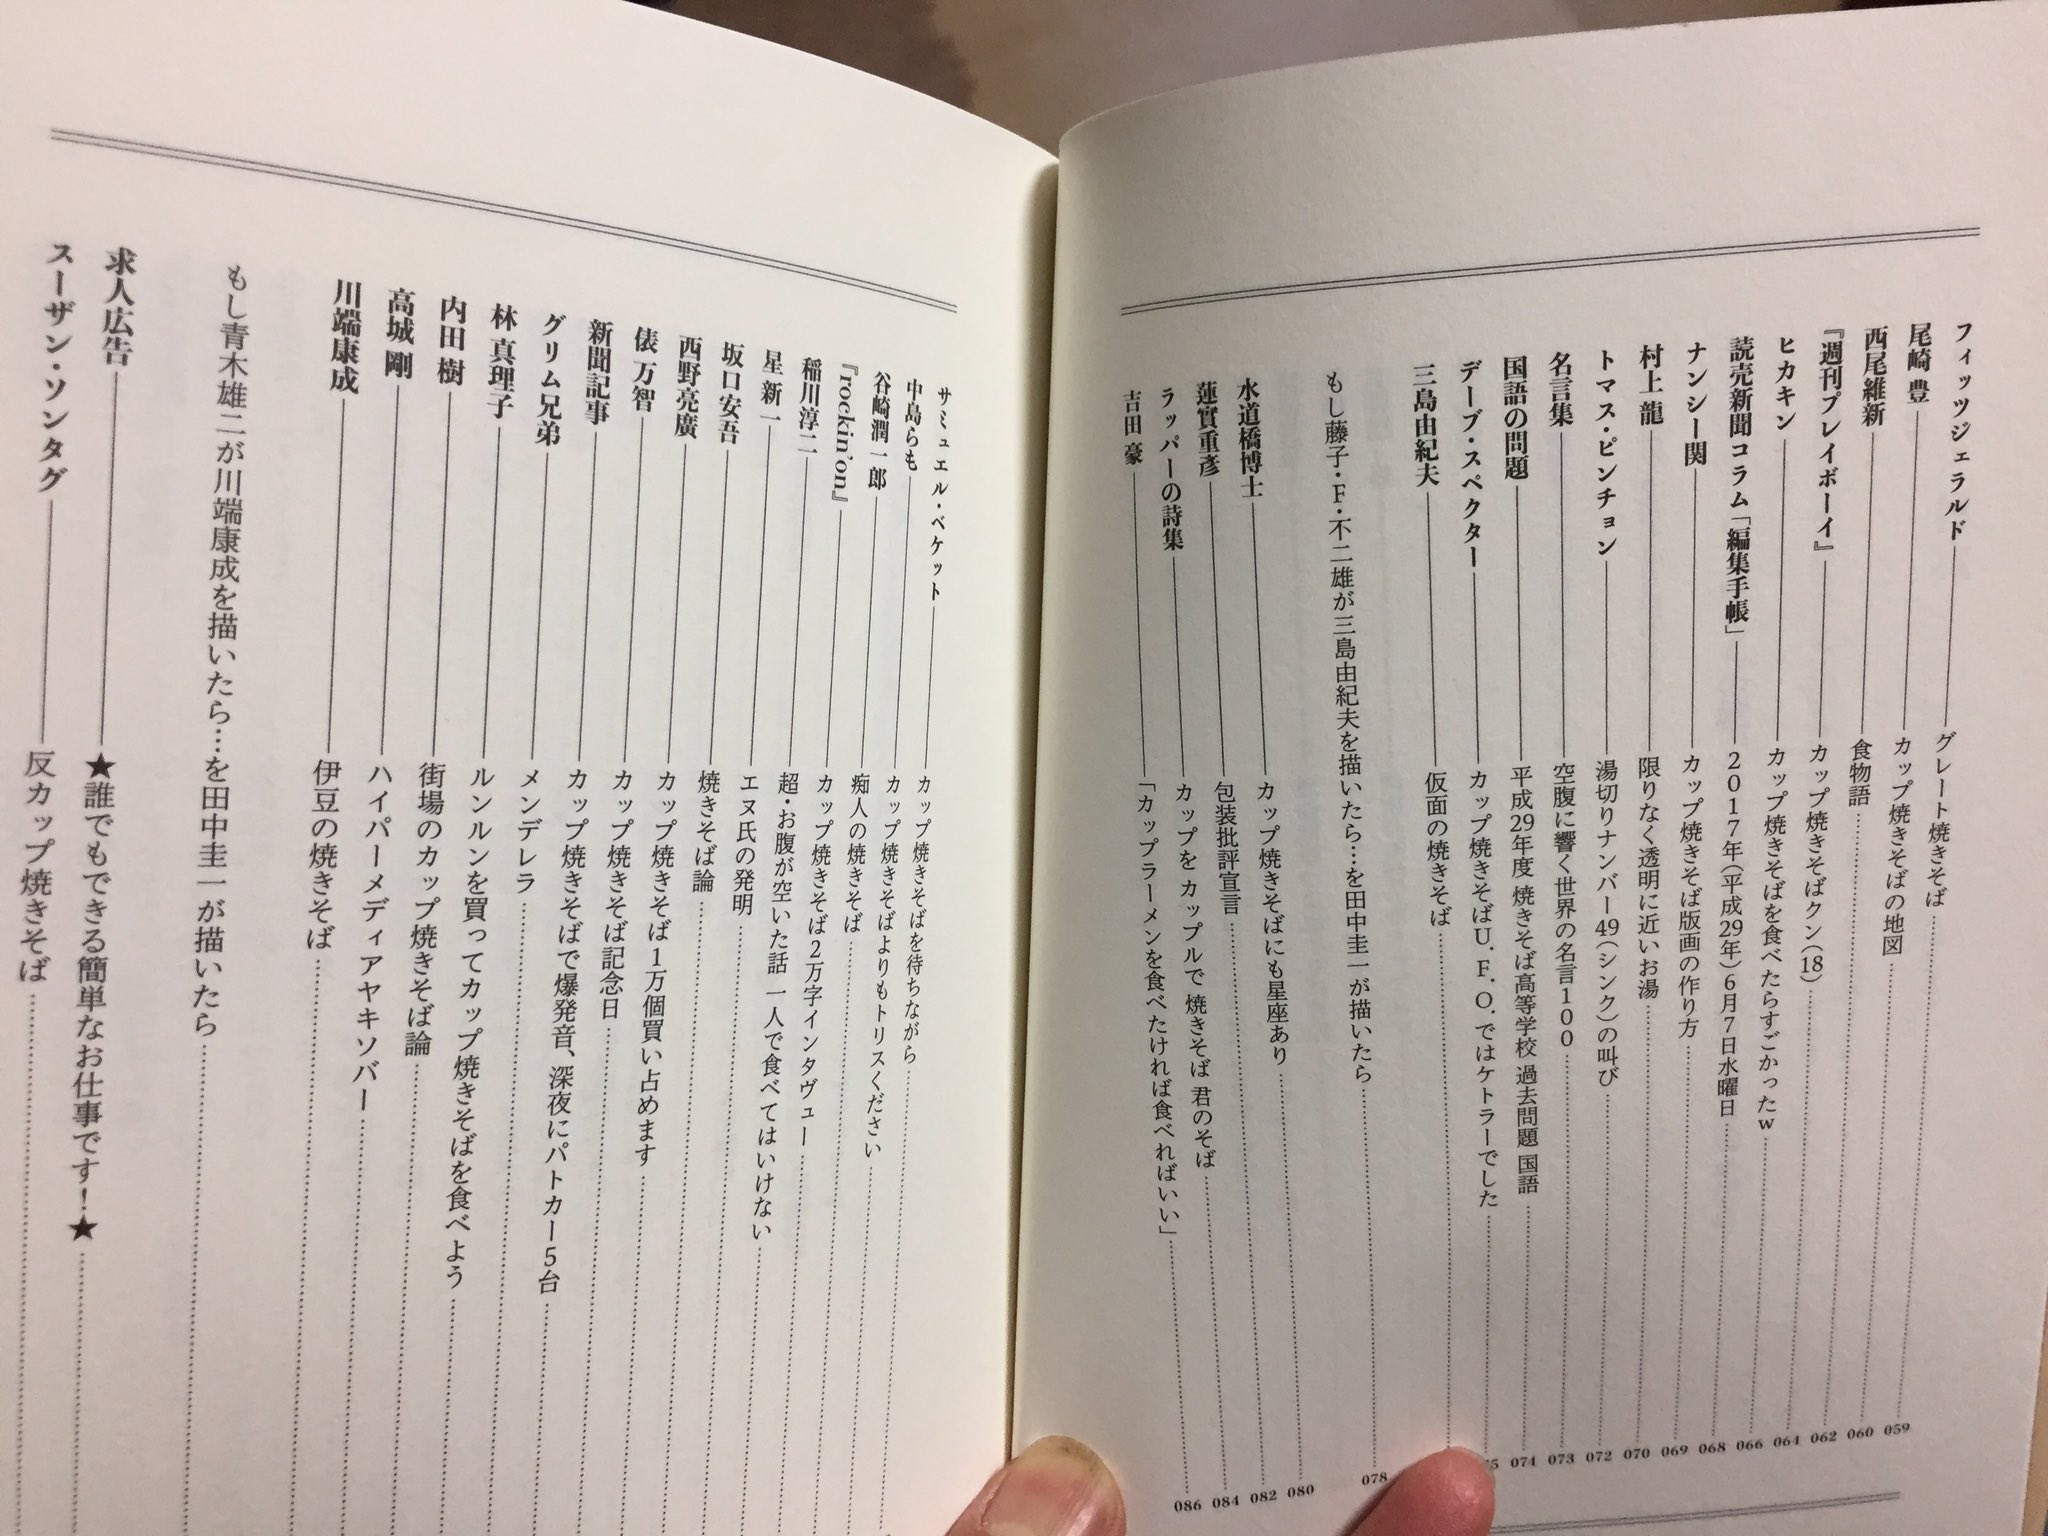 フィッツジェラルド グレート焼きそば 059
尾崎 豊 カップ焼きそばの地図 060
西尾維新 食物語 062
『週刊プレイボーイ』 カップ焼きそばクン(18) 064
ヒカキン カップ焼きそばを食べたらすごかったw 066
読売新聞コラム「編集手帳」 2017年(平成29年)6月7日水曜日 068
ナンシー関 カップ焼きそば版画の作り方 069
村上 龍 限りなく透明に近いお湯 070
トマス・ピンチョン 湯切りナンバー49(シンク)の叫び 072
名言集 空腹に響く世界の名言100 073
国語の問題 平成29年度 焼きそば高等学校 過去問題 国語 074
デーブ・スペクター カップ焼きそばU.F.O.ではケトラーでした
三島由紀夫 仮面の焼きそば
もし藤子・F・不二雄が三島由紀夫を描いたら…を田中圭一が描いたら 078
水道橋博士 カップ焼きそばにも星座あり 080
蓮實重彦 包装批評宣言 082
ラッパーの詩集 カップをカップルで 焼きそば 君のそば 084
吉田 豪 「カップラーメンを食べたければ食べればいい」 086
サミュエル・ベケット カップ焼きそばを待ちながら
中島らも カップ焼きそばよりもトリスください
谷崎潤一郎 痴人の焼きそば
『rockin'on』 カップ焼きそば2万字インタヴュー
稲川淳二 超・お腹が空いた話 一人で食べてはいけない
星 新一 エヌ氏の発明
坂口安吾 焼きそば論
西野亮廣 カップ焼きそば1万個買い占めます
俵 万智 カップ焼きそば記念日
新聞記事 カップ焼きそばで爆発音、深夜にパトカー5台
グリム兄弟 メンデレラ
林 真理子 ルンルンを買ってカップ焼きそばを食べよう
内田 樹 街場のカップ焼きそば論
高城 剛 ハイパーメディアヤキソバー
川端康成 伊豆の焼きそば
もし青木雄二が川端康成を描いたら…を田中圭一が描いたら
求人広告 ★誰でもできる簡単なお仕事です!★
スーザン・ソンタグ 反カップ焼きそば